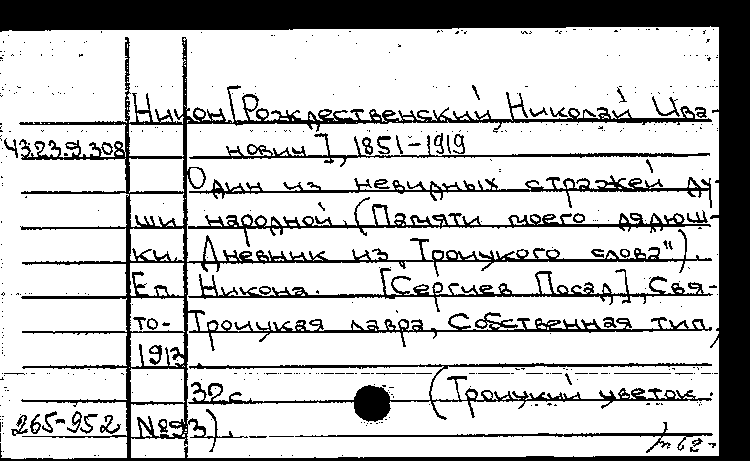 Никон [Рождественский, Николай Ива-
43.23.9.308 нович], 1851-1919
Один из невидных стражей ду-
ши народной. (Памяти моего дядюш-
ки. Дневник из "Троицкого слова").
Еп. Никона. [Сергиев Посад], Свя-
то-Троицкая лавра, Собственная тип.,
1913.
32 с. (Троицкий цветок.
265-952 №93).